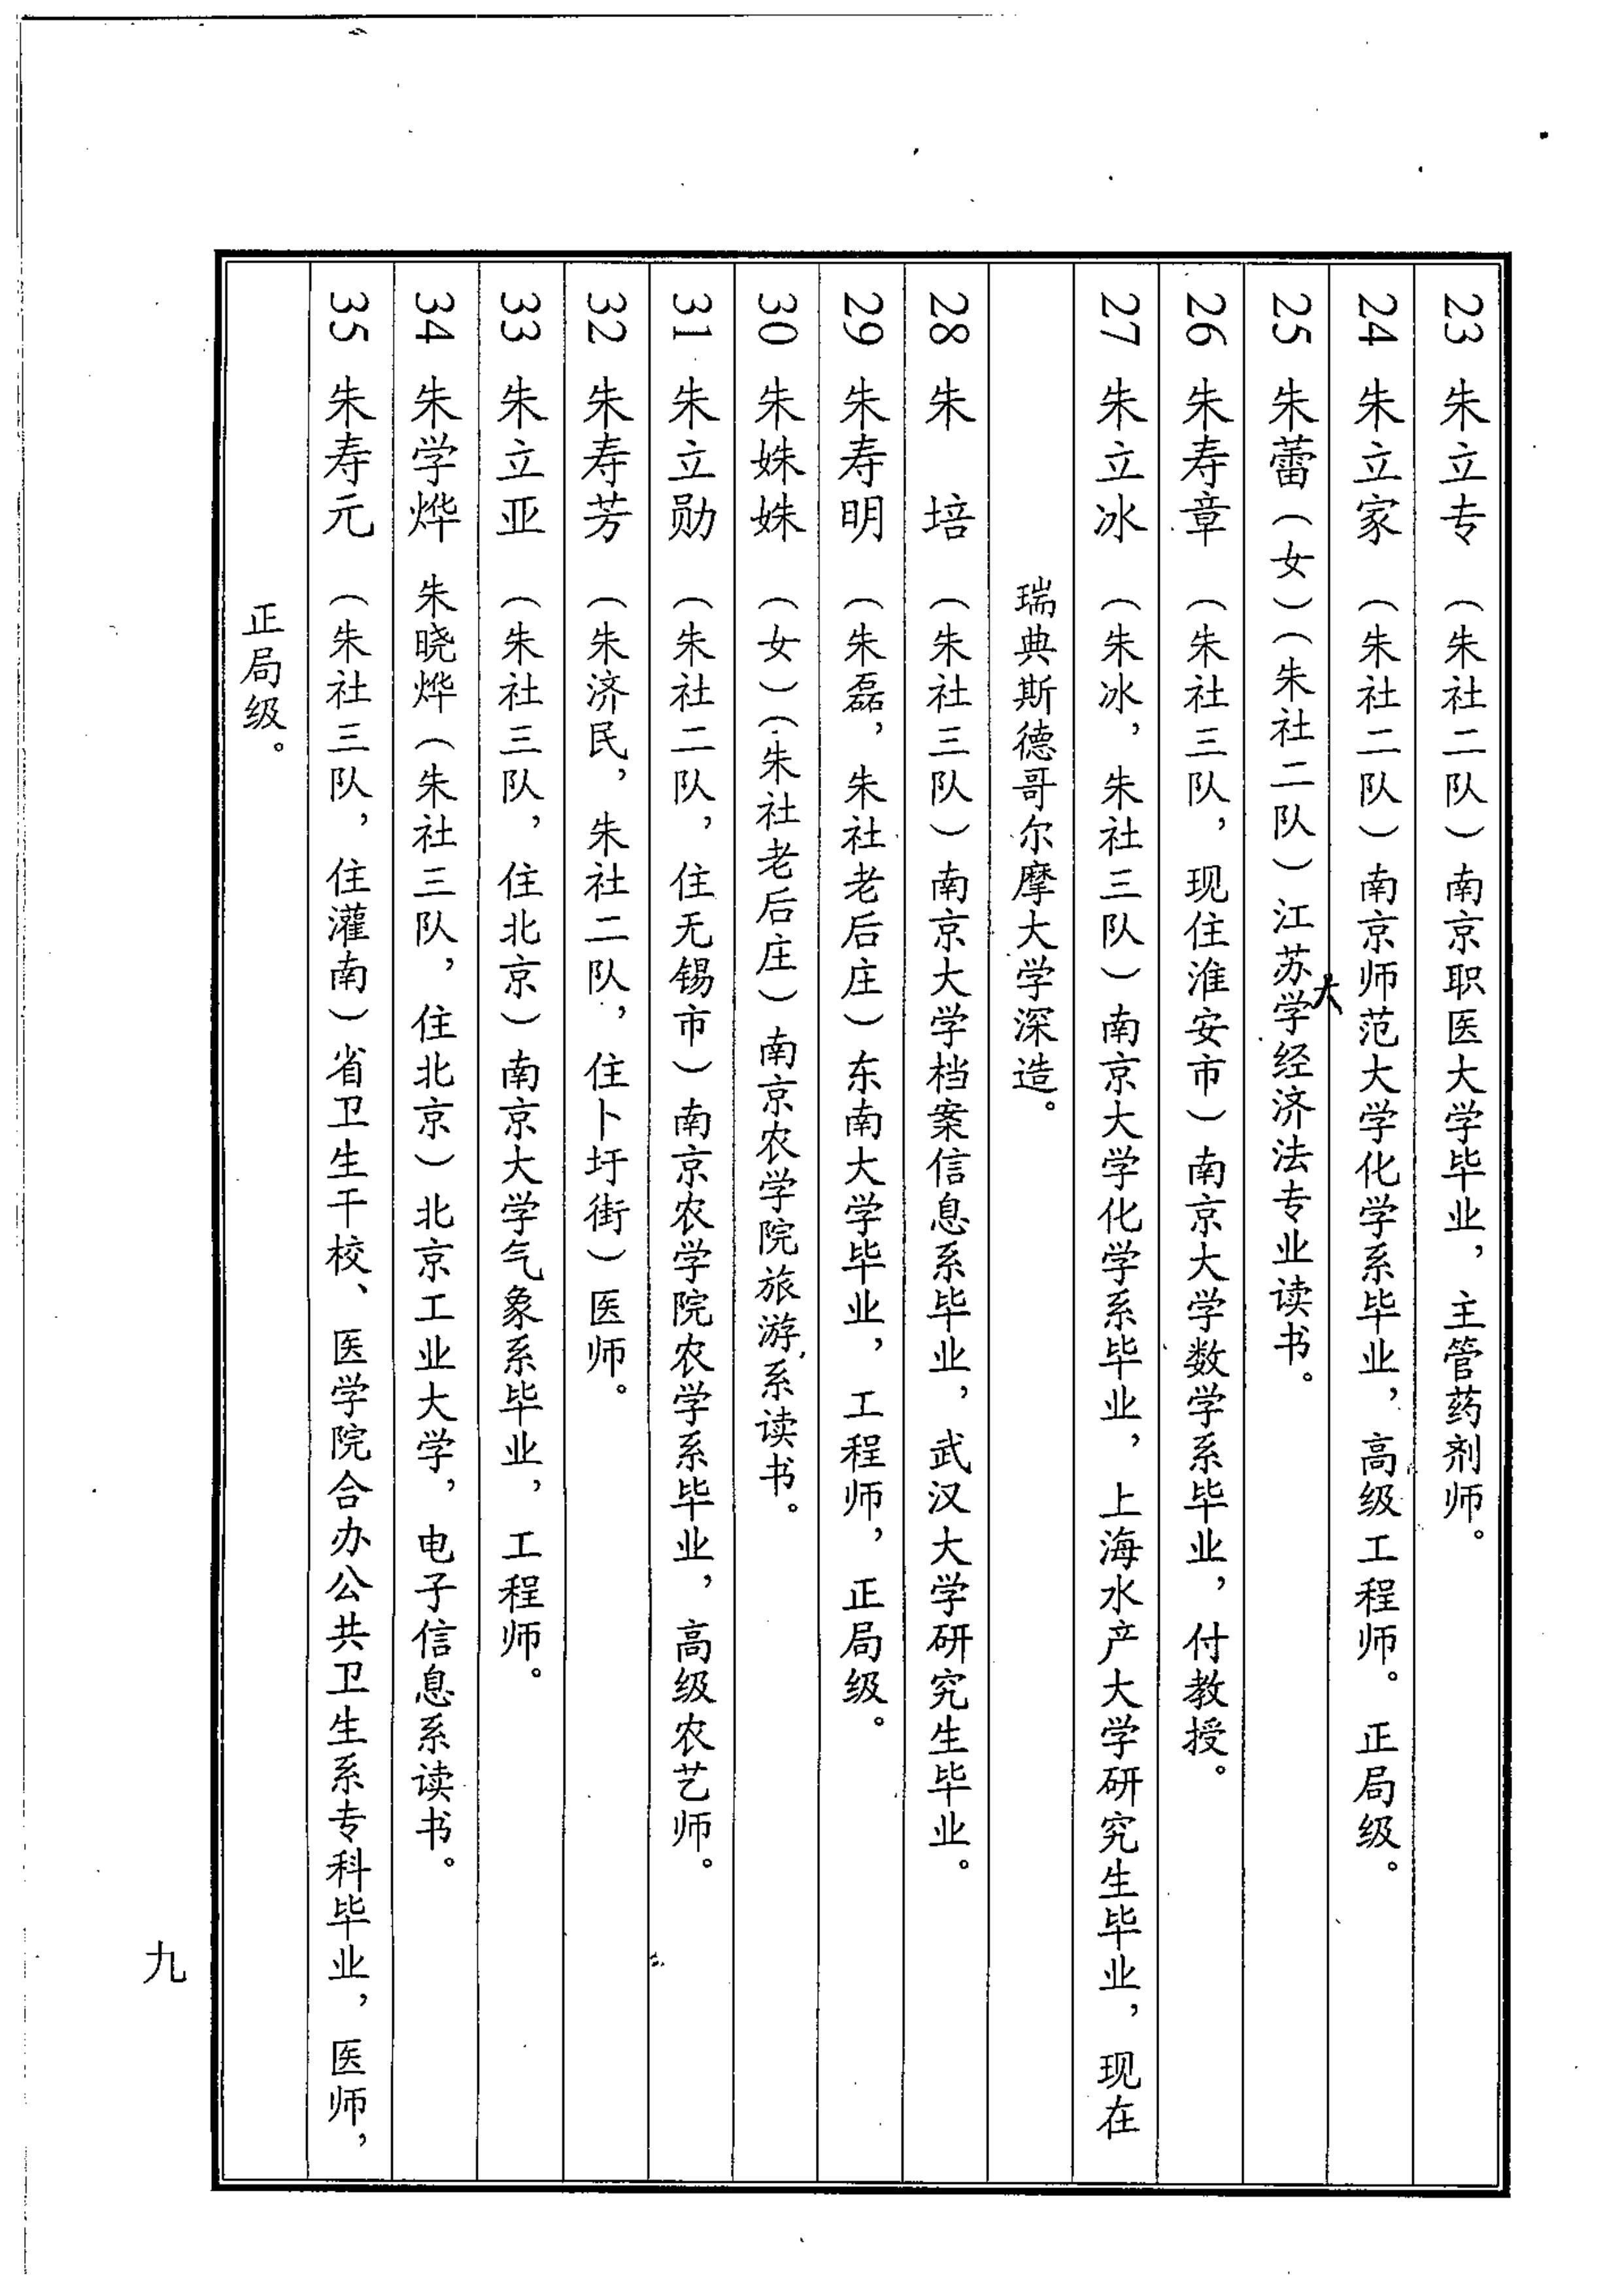 23 朱立专 （朱社二队）南京职医大学毕业，主管药剂师。
24 朱立家 （朱社二队）南京师范大学化学系毕业，高级工程师。正局级。
25 朱蕾（女）（朱社二队）江苏大学经济法专业读书。
26 朱寿章 （朱社三队，现住淮安市）南京大学数学系毕业，付教授。
27 朱立冰 （朱冰，朱社三队）南京大学化学系毕业，上海水产大学研究生毕业，现在
瑞典斯德哥尔摩大学深造。
28 朱 培 （朱社三队）南京大学档案信息系毕业，武汉大学研究生毕业。
29 朱寿明 （朱磊，朱社老后庄）东南大学毕业，工程师，正局级。
30 朱姝姝 （女）（朱社老后庄）南京农学院旅游系读书。
31 朱立勋 （朱社二队，住无锡市）南京农学院农学系毕业，高级农艺师。
32 朱寿芳 （朱济民，朱社二队，住卜圩街）医师。
33 朱立亚 （朱社三队，住北京）南京大学气象系毕业，工程师。
34 朱学烨 朱晓烨（朱社三队，住北京）北京工业大学，电子信息系读书。
35 朱寿元 （朱社三队，住灌南）省卫生干校、医学院合办公共卫生系专科毕业，医师，
正局级。
九